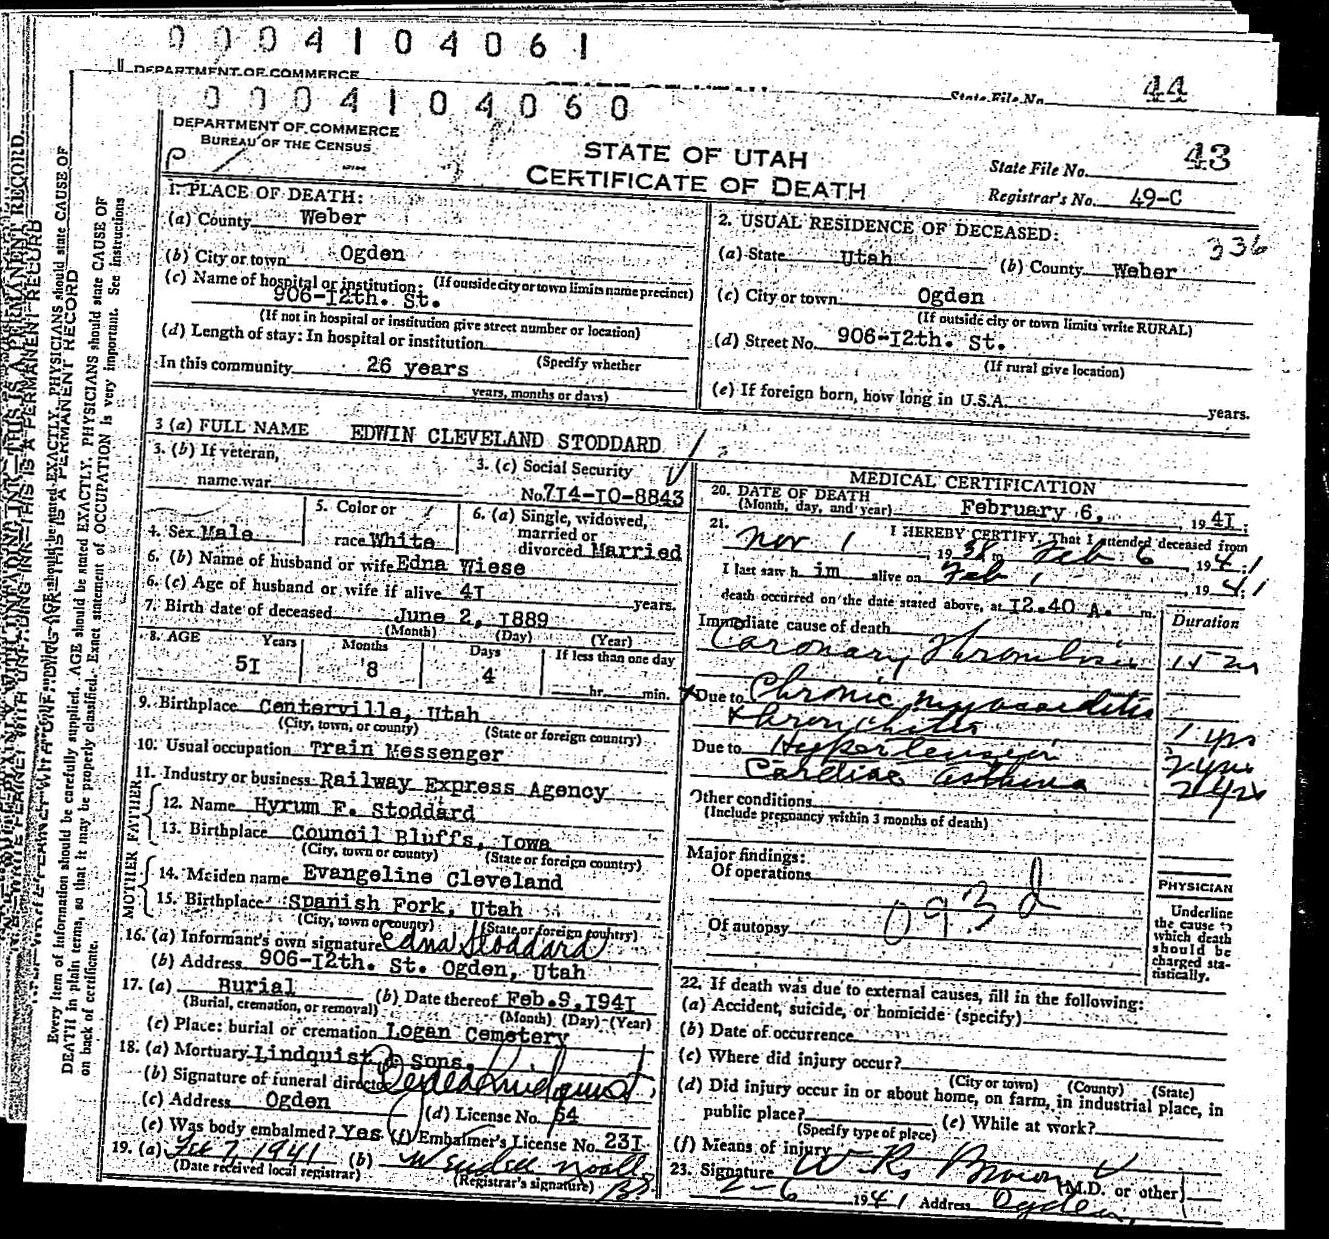 0004104061
DEPARTMENT OF COMMERCE
State File No. 44
0004104060
DEPARTMENT OF COMMERCE
BUREAU OF THE CENSUS
STATE OF UTAH
CERTIFICATE OF DEATH
State File No. 43
Registrar's No. 49-C
1. PLACE OF DEATH:
(a) County Weber
(b) City or town Ogden
(If outside city or town limits name precinct)
(c) Name of hospital or institution:
906-I2th. St.
(If not in hospital or institution give street number or location)
(d) Length of stay: In hospital or institution
(Specify whether
In this community 26 years
years, months or days)
2. USUAL RESIDENCE OF DECEASED:
336
(a) State Utah (b) County Weber
(c) City or town Ogden
(If outside city or town limits write RURAL)
(d) Street No. 906-I2th. St.
(If rural give location)
(e) If foreign born, how long in U.S.A. years.
3 (a) FULL NAME EDWIN CLEVELAND STODDARD
3. (b) If veteran,
name war
3. (c) Social Security
No. 7I4-I0-8843
4. Sex Male
5. Color or
race White
6. (a) Single, widowed,
married or
divorced Married
6. (b) Name of husband or wife Edna Wiese
6. (c) Age of husband or wife if alive 4I years.
7. Birth date of deceased June 2, I889
(Month) (Day) (Year)
8. AGE Years Months Days If less than one day
5I 8 4 hr. min.
9. Birthplace Centerville, Utah
(City, town, or county) (State or foreign country)
10. Usual occupation Train Messenger
11. Industry or business Railway Express Agency
FATHER
12. Name Hyrum F. Stoddard
13. Birthplace Council Bluffs, Iowa
(City, town or county) (State or foreign country)
MOTHER
14. Maiden name Evangeline Cleveland
15. Birthplace Spanish Fork, Utah
(City, town or county) (State or foreign country)
16. (a) Informant's own signature Edna Stoddard
(b) Address 906-I2th. St. Ogden, Utah
17. (a) Burial (b) Date thereof Feb.9,I94I
(Burial, cremation, or removal) (Month) (Day) (Year)
(c) Place: burial or cremation Logan Cemetery
18. (a) Mortuary Lindquist & Sons,
(b) Signature of funeral director
(c) Address Ogden (d) License No. 54
(e) Was body embalmed? Yes (f) Embalmer's License No. 23I
19. (a) Feb 7, 1941 (b) Wendell Noall
(Date received local registrar) (Registrar's signature)
MEDICAL CERTIFICATION
20. DATE OF DEATH
(Month, day, and year) February 6, 1941
21. I HEREBY CERTIFY, That I attended deceased from
Nov 1, 1938 to Feb 6 1941
I last saw him alive on Feb 1 1941
death occurred on the date stated above, at I2.40 A. m.
Immediate cause of death Duration
Coronary Thrombosis
Due to Chronic Myocarditis
+ bronchitis 1 yrs
Due to Hypertension 2 yrs
Cardiac asthma 2 yrs
Other conditions
(Include pregnancy within 3 months of death)
Major findings:
Of operations
093 d
Of autopsy
PHYSICIAN
Underline
the cause to
which death
should be
charged sta-
tistically.
22. If death was due to external causes, fill in the following:
(a) Accident, suicide, or homicide (specify)
(b) Date of occurrence
(c) Where did injury occur?
(City or town) (County) (State)
(d) Did injury occur in or about home, on farm, in industrial place, in
public place? (e) While at work?
(Specify type of place)
(f) Means of injury
23. Signature W R Brown (M.D. or other)
2-6 1941 Address Ogden,
Every item of information should be carefully supplied. AGE should be stated EXACTLY. PHYSICIANS should state CAUSE OF
DEATH in plain terms, so that it may be properly classified. Exact statement of OCCUPATION is very important. See instructions
on back of certificate.